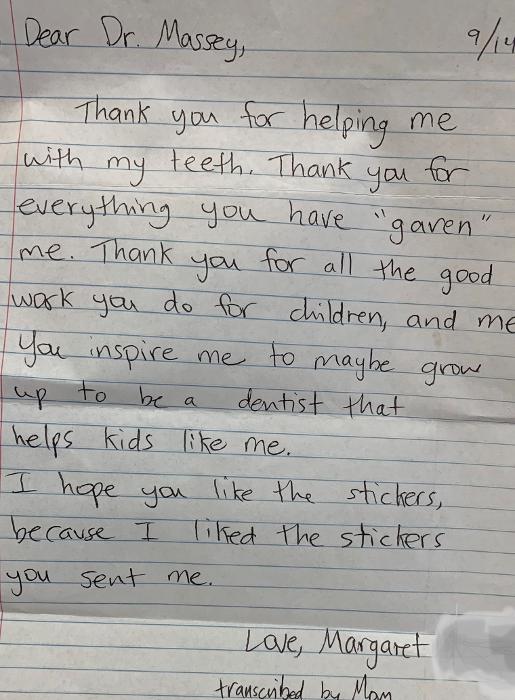 Dear Dr. Massey,
9/14
Thank you for helping me
with my teeth. Thank you for
everything you have "gaven"
me. Thank you for all the good
work you do for children, and me
You inspire me to maybe grow
up to be a dentist that
helps kids like me.
I hope you like the stickers,
because I liked the stickers
you sent me.
Love, Margaret
transcribed by Mom